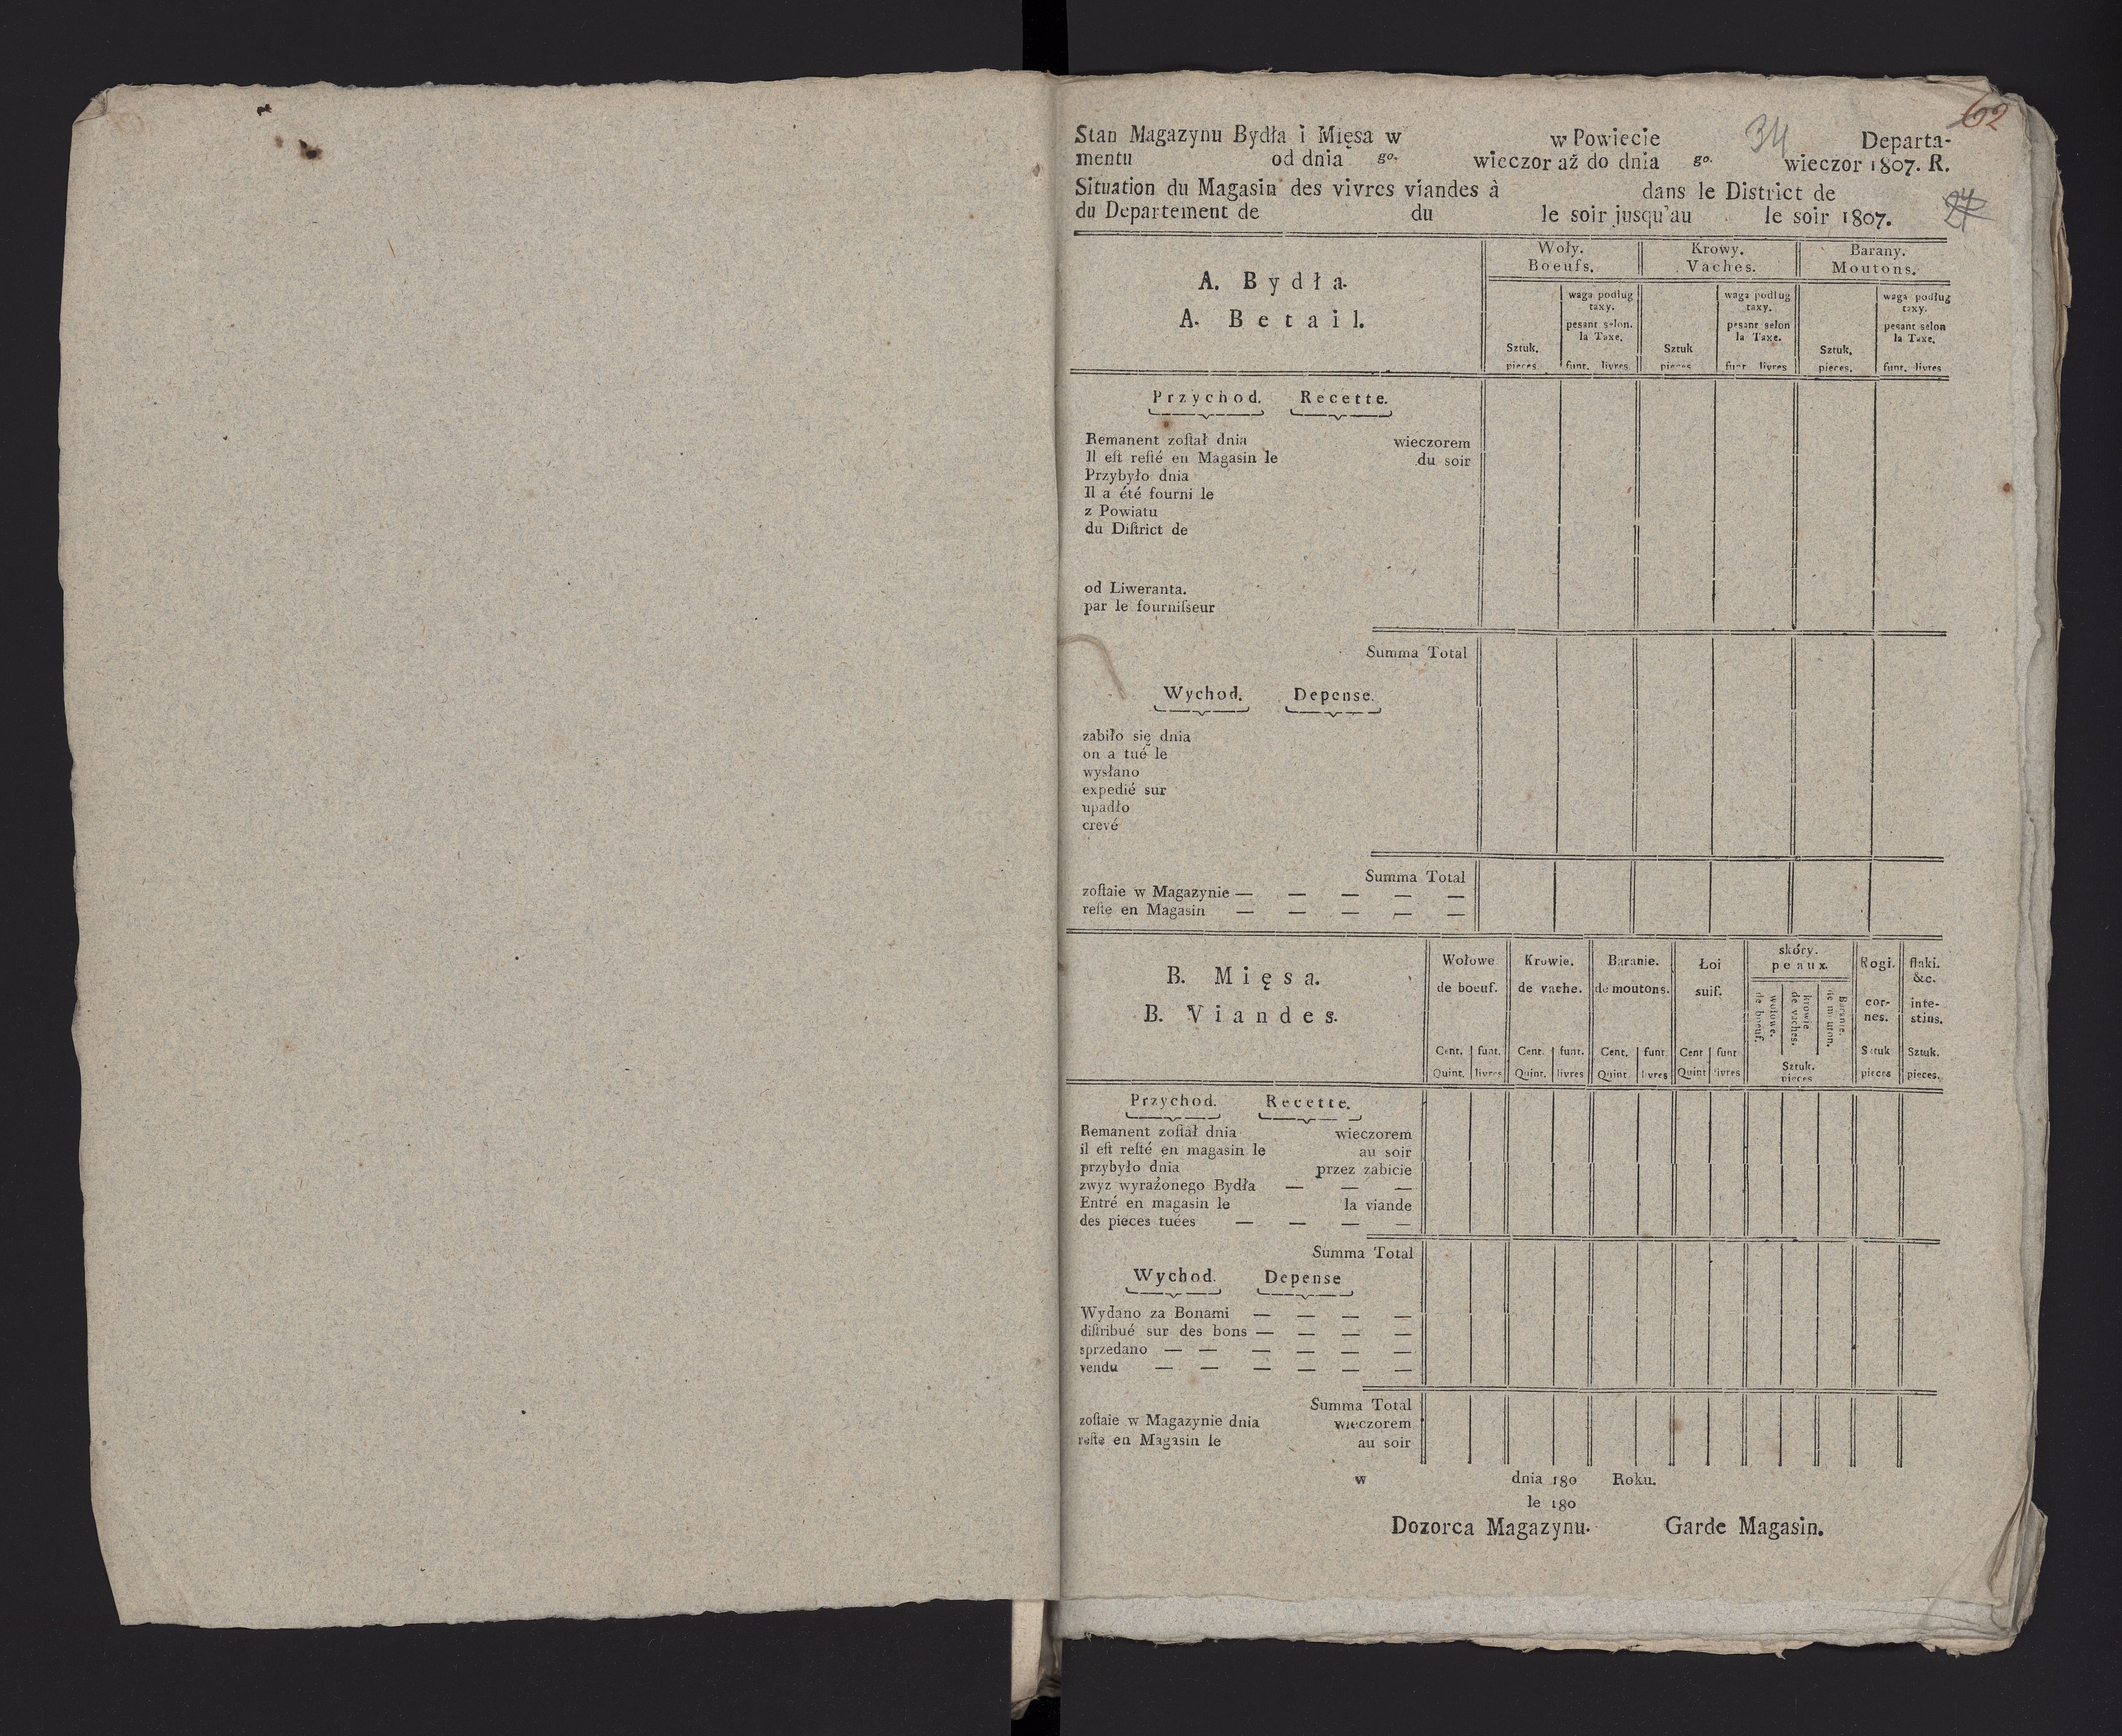 62
34
Stan Magazynu Bydła i Mięsa w w Powiecie Departa-
mentu od dnia go. wieczor aż do dnia go. wieczor 1807. R.
Situation du Magasin des vivres viandes à dans le District de
du Departement de du le soir jusqu'au le soir 1807.
A. Bydła.
A. Betail.
Woły. Krowy. Barany.
Boeufs. Vaches. Moutons.
waga podług waga podług waga podług
taxy. taxy. taxy.
pesant selon. pesant selon pesant selon
la Taxe. la Taxe. la Taxe.
Sztuk. Sztuk Sztuk.
pieces. funt. livres pieces funt livres pieces. funt. livres
Przychod. Recette.
Remanent zoſtał dnia wieczorem
Il eſt reſté en Magasin le du soir
Przybyło dnia
Il a été fourni le
z Powiatu
du Diſtrict de
od Liweranta.
par le fourniſseur
Summa Total
Wychod. Depense.
zabiło się dnia
on a tué le
wysłano
expedié sur
upadło
crevé
Summa Total
zoſtaie w Magazynie — — — — —
reſte en Magasin — — — — —
B. Mięsa.
B. Viandes.
Wołowe Krowie. Baranie. Łoi skóry. Rogi. flaki.
de boeuf. de vache. de moutons. suif. peaux. cor- &c.
nes. inte-
stins.
wołowe. krowie Baranie.
de boeuf. de vaches. de mouton.
Cent. funt. Cent. funt. Cent. funt Cent funt Sztuk. Sztuk Sztuk.
Quint. livres Quint. livres Quint livres Quint livres pieces pieces pieces.
Przychod. Recette.
Remanent zoſtał dnia wieczorem
il eſt reſté en magasin le au soir
przybyło dnia przez zabicie
zwyz wyrażonego Bydła — — —
Entré en magasin le la viande
des pieces tuées — — — —
Summa Total
Wychod. Depense
Wydano za Bonami — — — —
diſtribué sur des bons — — — —
sprzedano — — — — — —
vendu — — — — — —
Summa Total
zoſtaie w Magazynie dnia wieczorem
reſte en Magasin le au soir
w dnia 180 Roku.
le 180
Dozorca Magazynu. Garde Magasin.